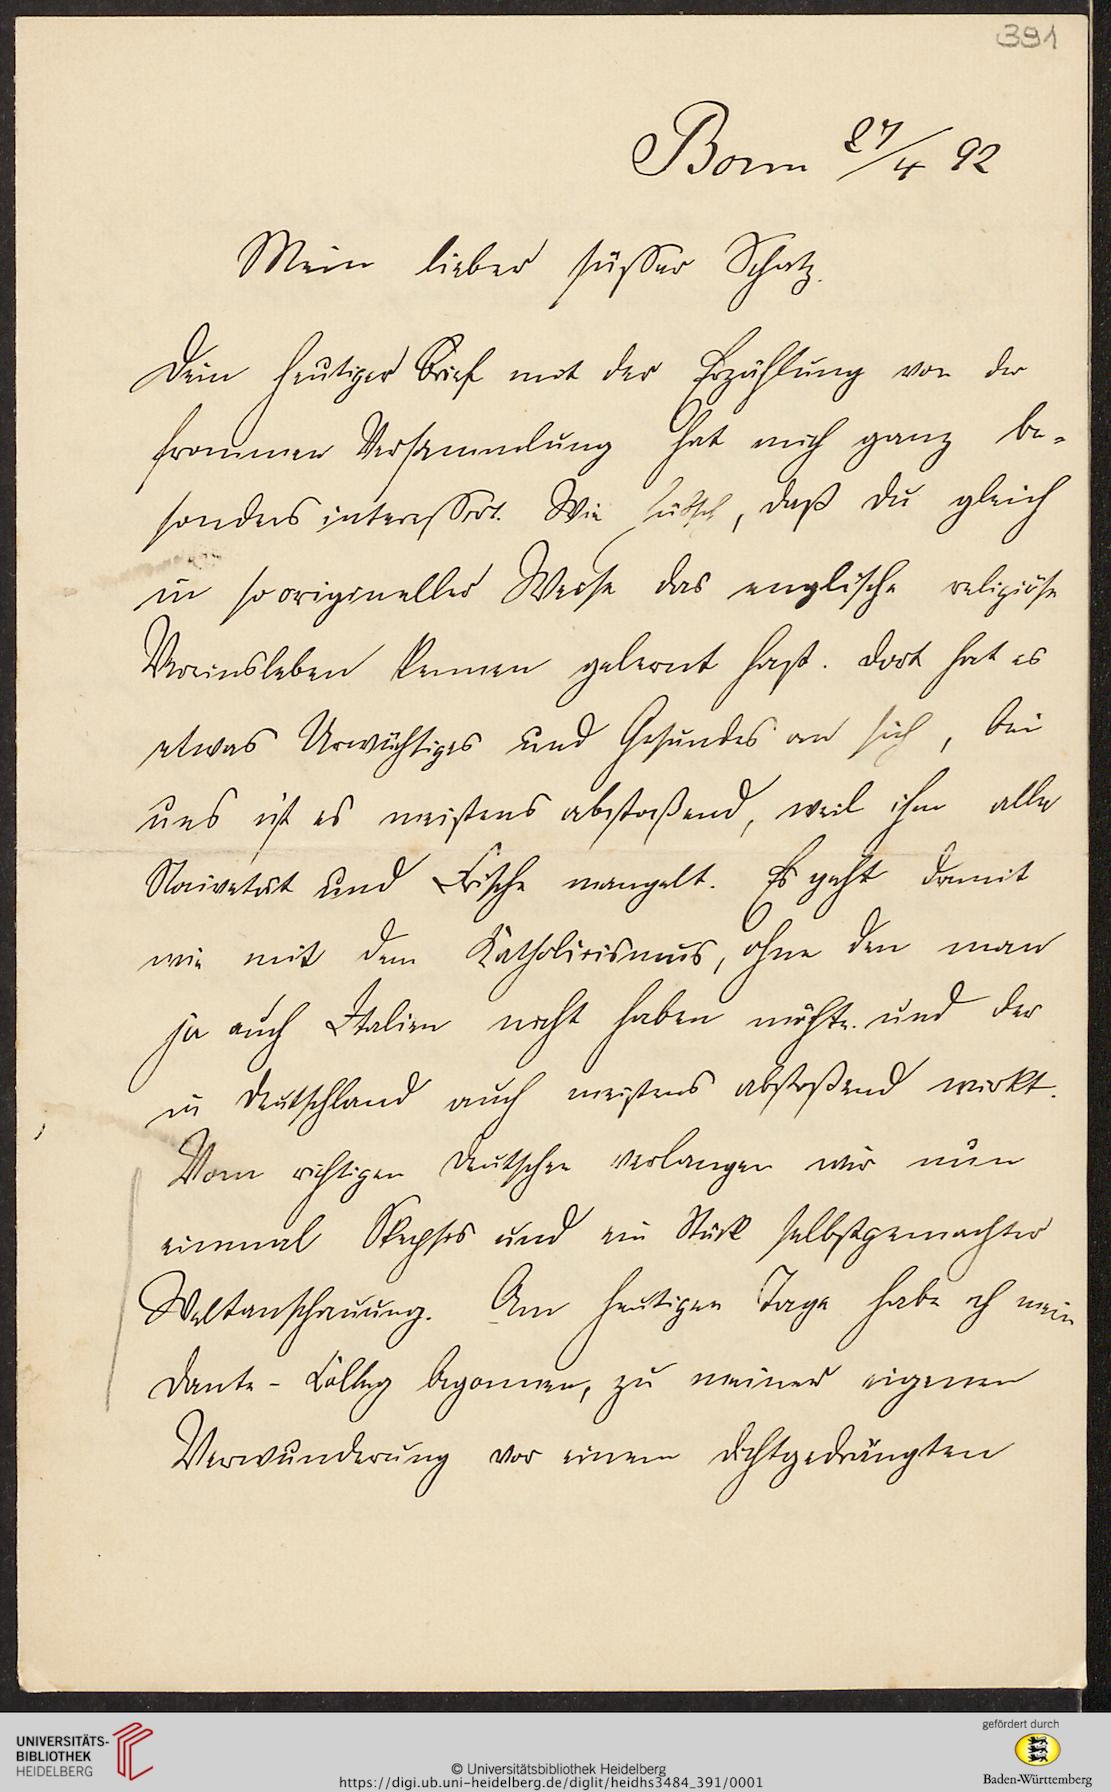 391
Bonn 27/4 92
Mein lieber süsser Schatz.
Dein heutiger Brief mit der Erzählung von der
frommen Versammlung hat mich ganz be-
sonders interessirt. Wie hübsch, daß du gleich
in so origineller Weise das englische religiöse
Vereinsleben kennen gelernt hast. Dort hat es
etwas Urwüchsiges und Gesundes an sich, bei
uns ist es meistens abstoßend, weil ihm alle
Naivetät und Frische mangelt. Es geht damit
wie mit dem Katholicismus, ohne den man
ja auch Italien nicht haben möchte und der
in Deutschland auch meistens abstoßend wirkt.
Vom richtigen Deutschen verlangen wir nun
einmal Skepsis und ein Stück selbstgemachter
Weltanschauung. Am heutigen Tage habe ich mein
Dante-Colleg begonnen, zu meiner eigenen
Verwunderung vor einem dichtgedrängten
UNIVERSITÄTS-
BIBLIOTHEK
HEIDELBERG
© Universitätsbibliothek Heidelberg
https://digi.ub.uni-heidelberg.de/diglit/heidhs3484_391/0001
gefördert durch
Baden-Württemberg